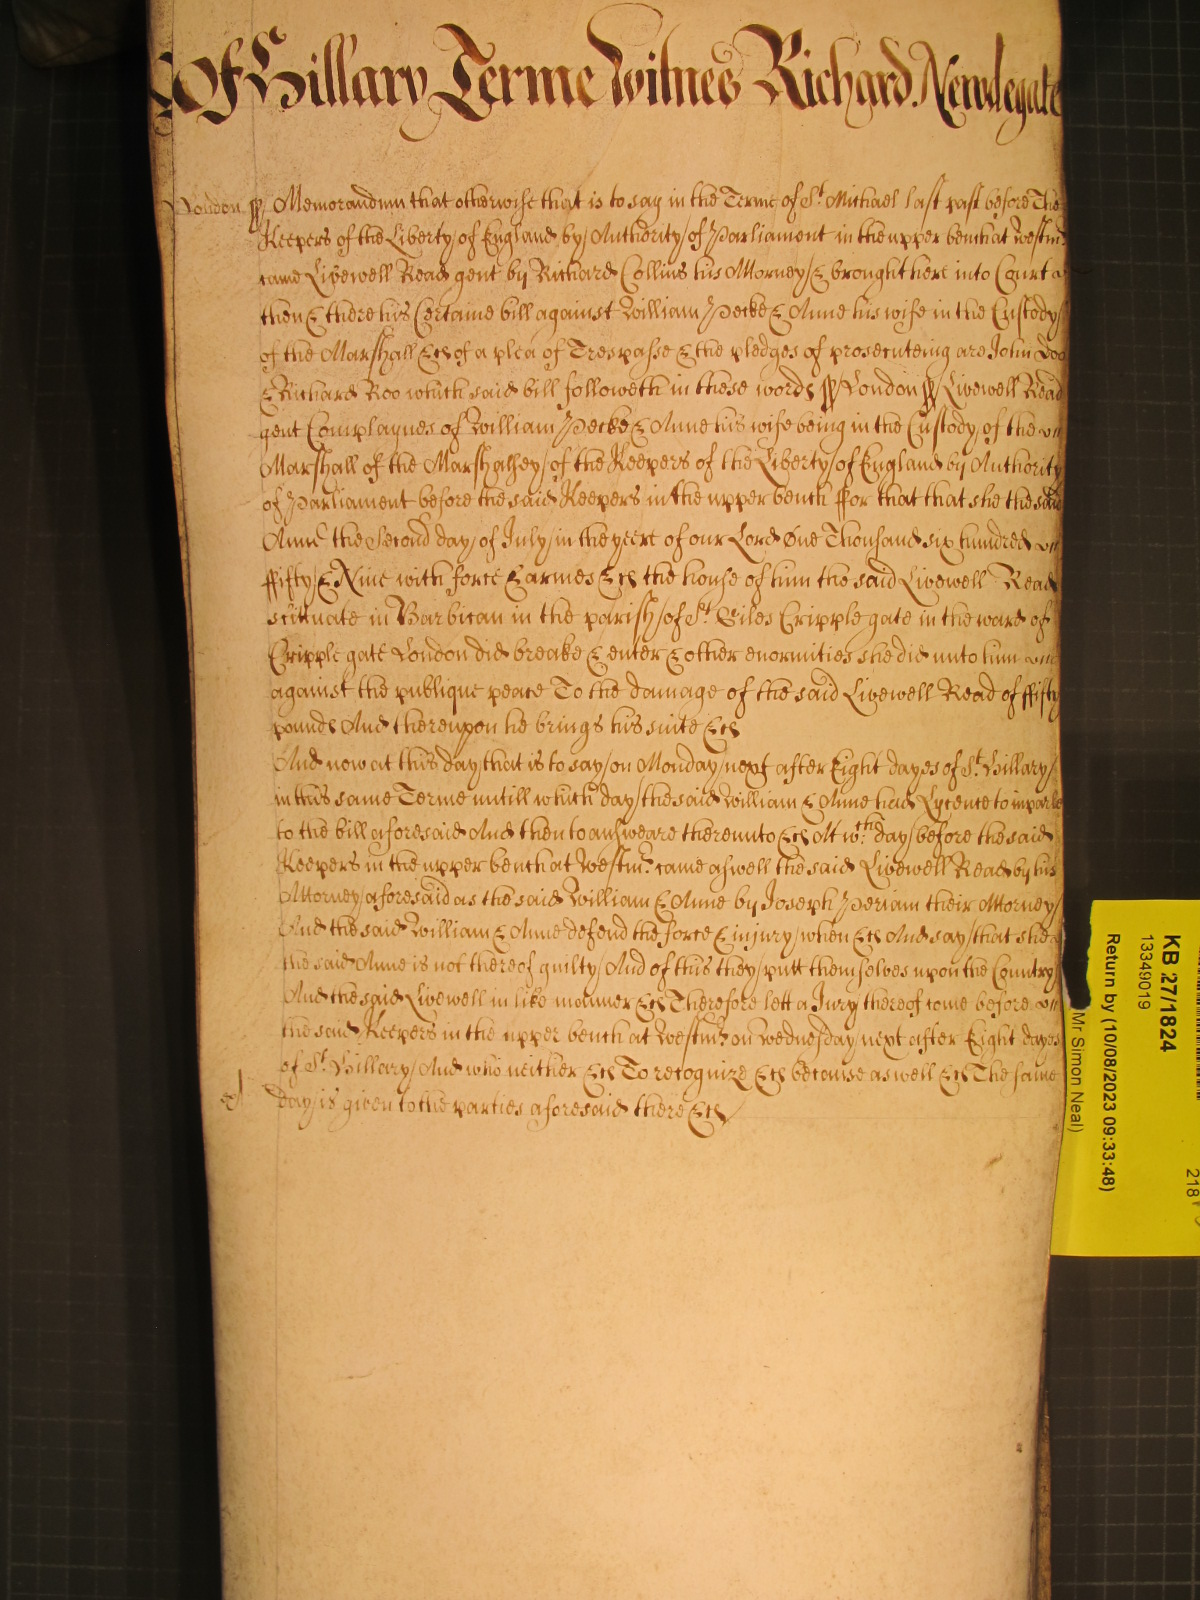 Of Hillary Terme Witnes Richard Newdegate
London ss/ Memorandum that otherwise that is to say in the Terme of St Michael last past before The
Keepers of the Liberty of England by Authority of Parliament in the upper bench at Westmr
came Livewell Read gent by Richard Collins his Attorney & brought here into Court
then & there his Certaine bill against William Pecke & Anne his wife in the Custody
of the Marshall &c of a plea of Trespasse & the pledges of prosecuteing are John Doo
& Richard Roo which said bill followeth in these words ss/ London ss/ Livewell Read
gent Complaynes of William Pecke & Anne his wife being in the Custody of the
Marshall of the Marshalsey of the Keepers of the Liberty of England by Authority
of Parliament before the said Keepers in the upper bench ffor that that she the said
Anne the Second day of July in the yeere of our Lord One Thousand six hundred
ffifty & Nine with force & armes &c the house of him the said Livewell Read
scituate in Barbican in the parish of St Giles Cripple gate in the ward of
Cripple gate London did breake & enter & other enormities she did unto him
against the publique peace To the damage of the said Livewell Read of ffifty
pounds And thereupon he brings his suite &c
And now at this day that is to say on Monday next after Eight dayes of St Hillary
in this same Terme untill which day the said William & Anne had Lycence to imparle
to the bill aforesaid And then to answeare thereunto &c At wch day before the said
Keepers in the upper bench at Westmr came aswell the said Livewell Read by his
Attorney aforesaid as the said William & Anne by Joseph Periam their Attorney
And the said William & Anne defend the force & injury when &c And say that she
the said Anne is not thereof guilty And of this they putt themselves upon the Country
And the said Livewell in like manner &c Therefore lett a Jury thereof come before
the said Keepers in the upper bench at Westmr on Wednesday next after Eight dayes
of St Hillary And who neither &c To recognize &c because aswell &c The same
day is given to the parties aforesaid there &c
KB 27/1824
13349019
Return by (10/08/2023 09:33:48)
Mr Simon Neal)